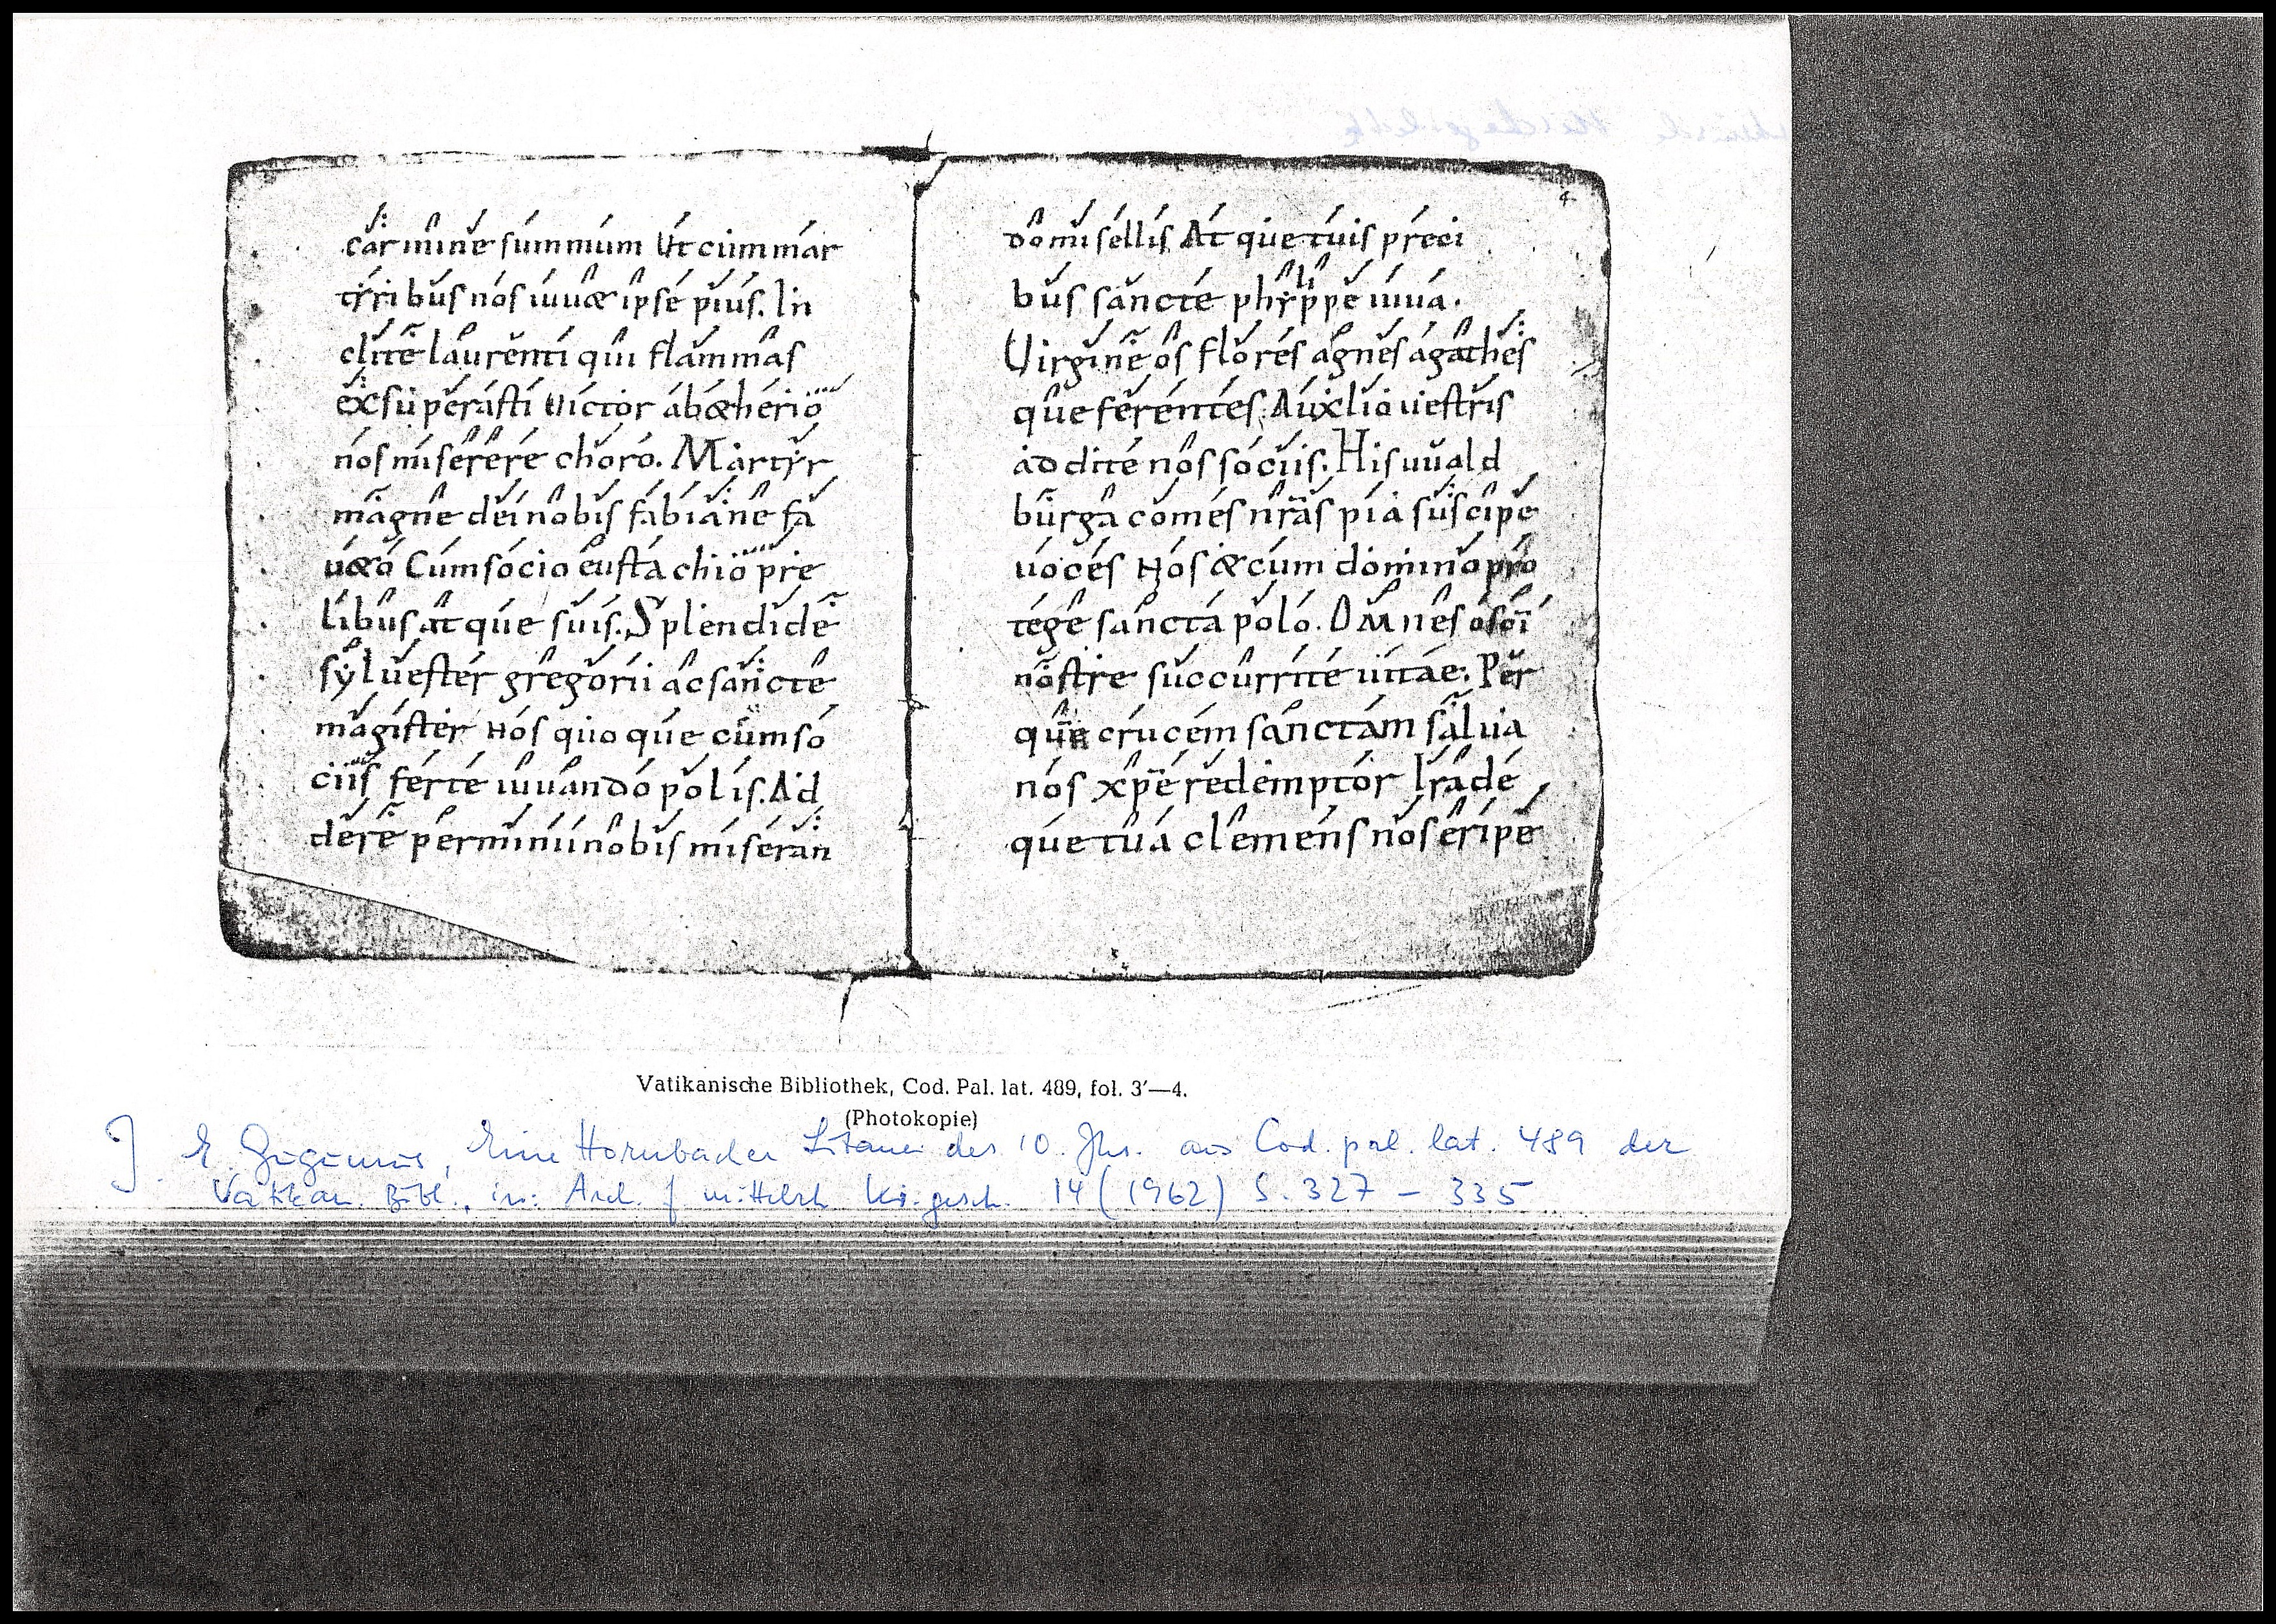 carmine summum Ut cum mar
tyribus nos iuuæ ipse pius. In
clite laurenti qui flammas
exsuperasti Uictor ab æherio
nos miserere choro. Martyr
magne dei nobis fabiane fa
uæo Cum socio eustachio pre
libus atque suis. Splendide
syluester gregorii ac sancte
magister Nos quoque cum so
ciis ferte iuuando polis. Ad
dere perminii nobis miseran
4
do misellis At que tuis preci
bus sancte phylippe iuua.
Uirgineos flores agnes agathes
que ferentes Auxlio uestris
addite nos sociis. His uuald
burga comes nras pia suscipe
uoces Nos æ cum domino pro
tege sancta polo. OMnes o soi
nostre succurrite uitae. Per
que crucem sanctam salua
nos xpe redemptor Ira de
que tua clemens nos eripe
Vatikanische Bibliothek, Cod. Pal. lat. 489, fol. 3′—4.
(Photokopie)
J. E. Gugumus, Eine Hornbacher Litanei des 10. Jhs. aus Cod. pal. lat. 489 der
Vatikan. Bibl., in: Arch. f mittelrh Ki.gesch. 14 (1962) S. 327 – 335